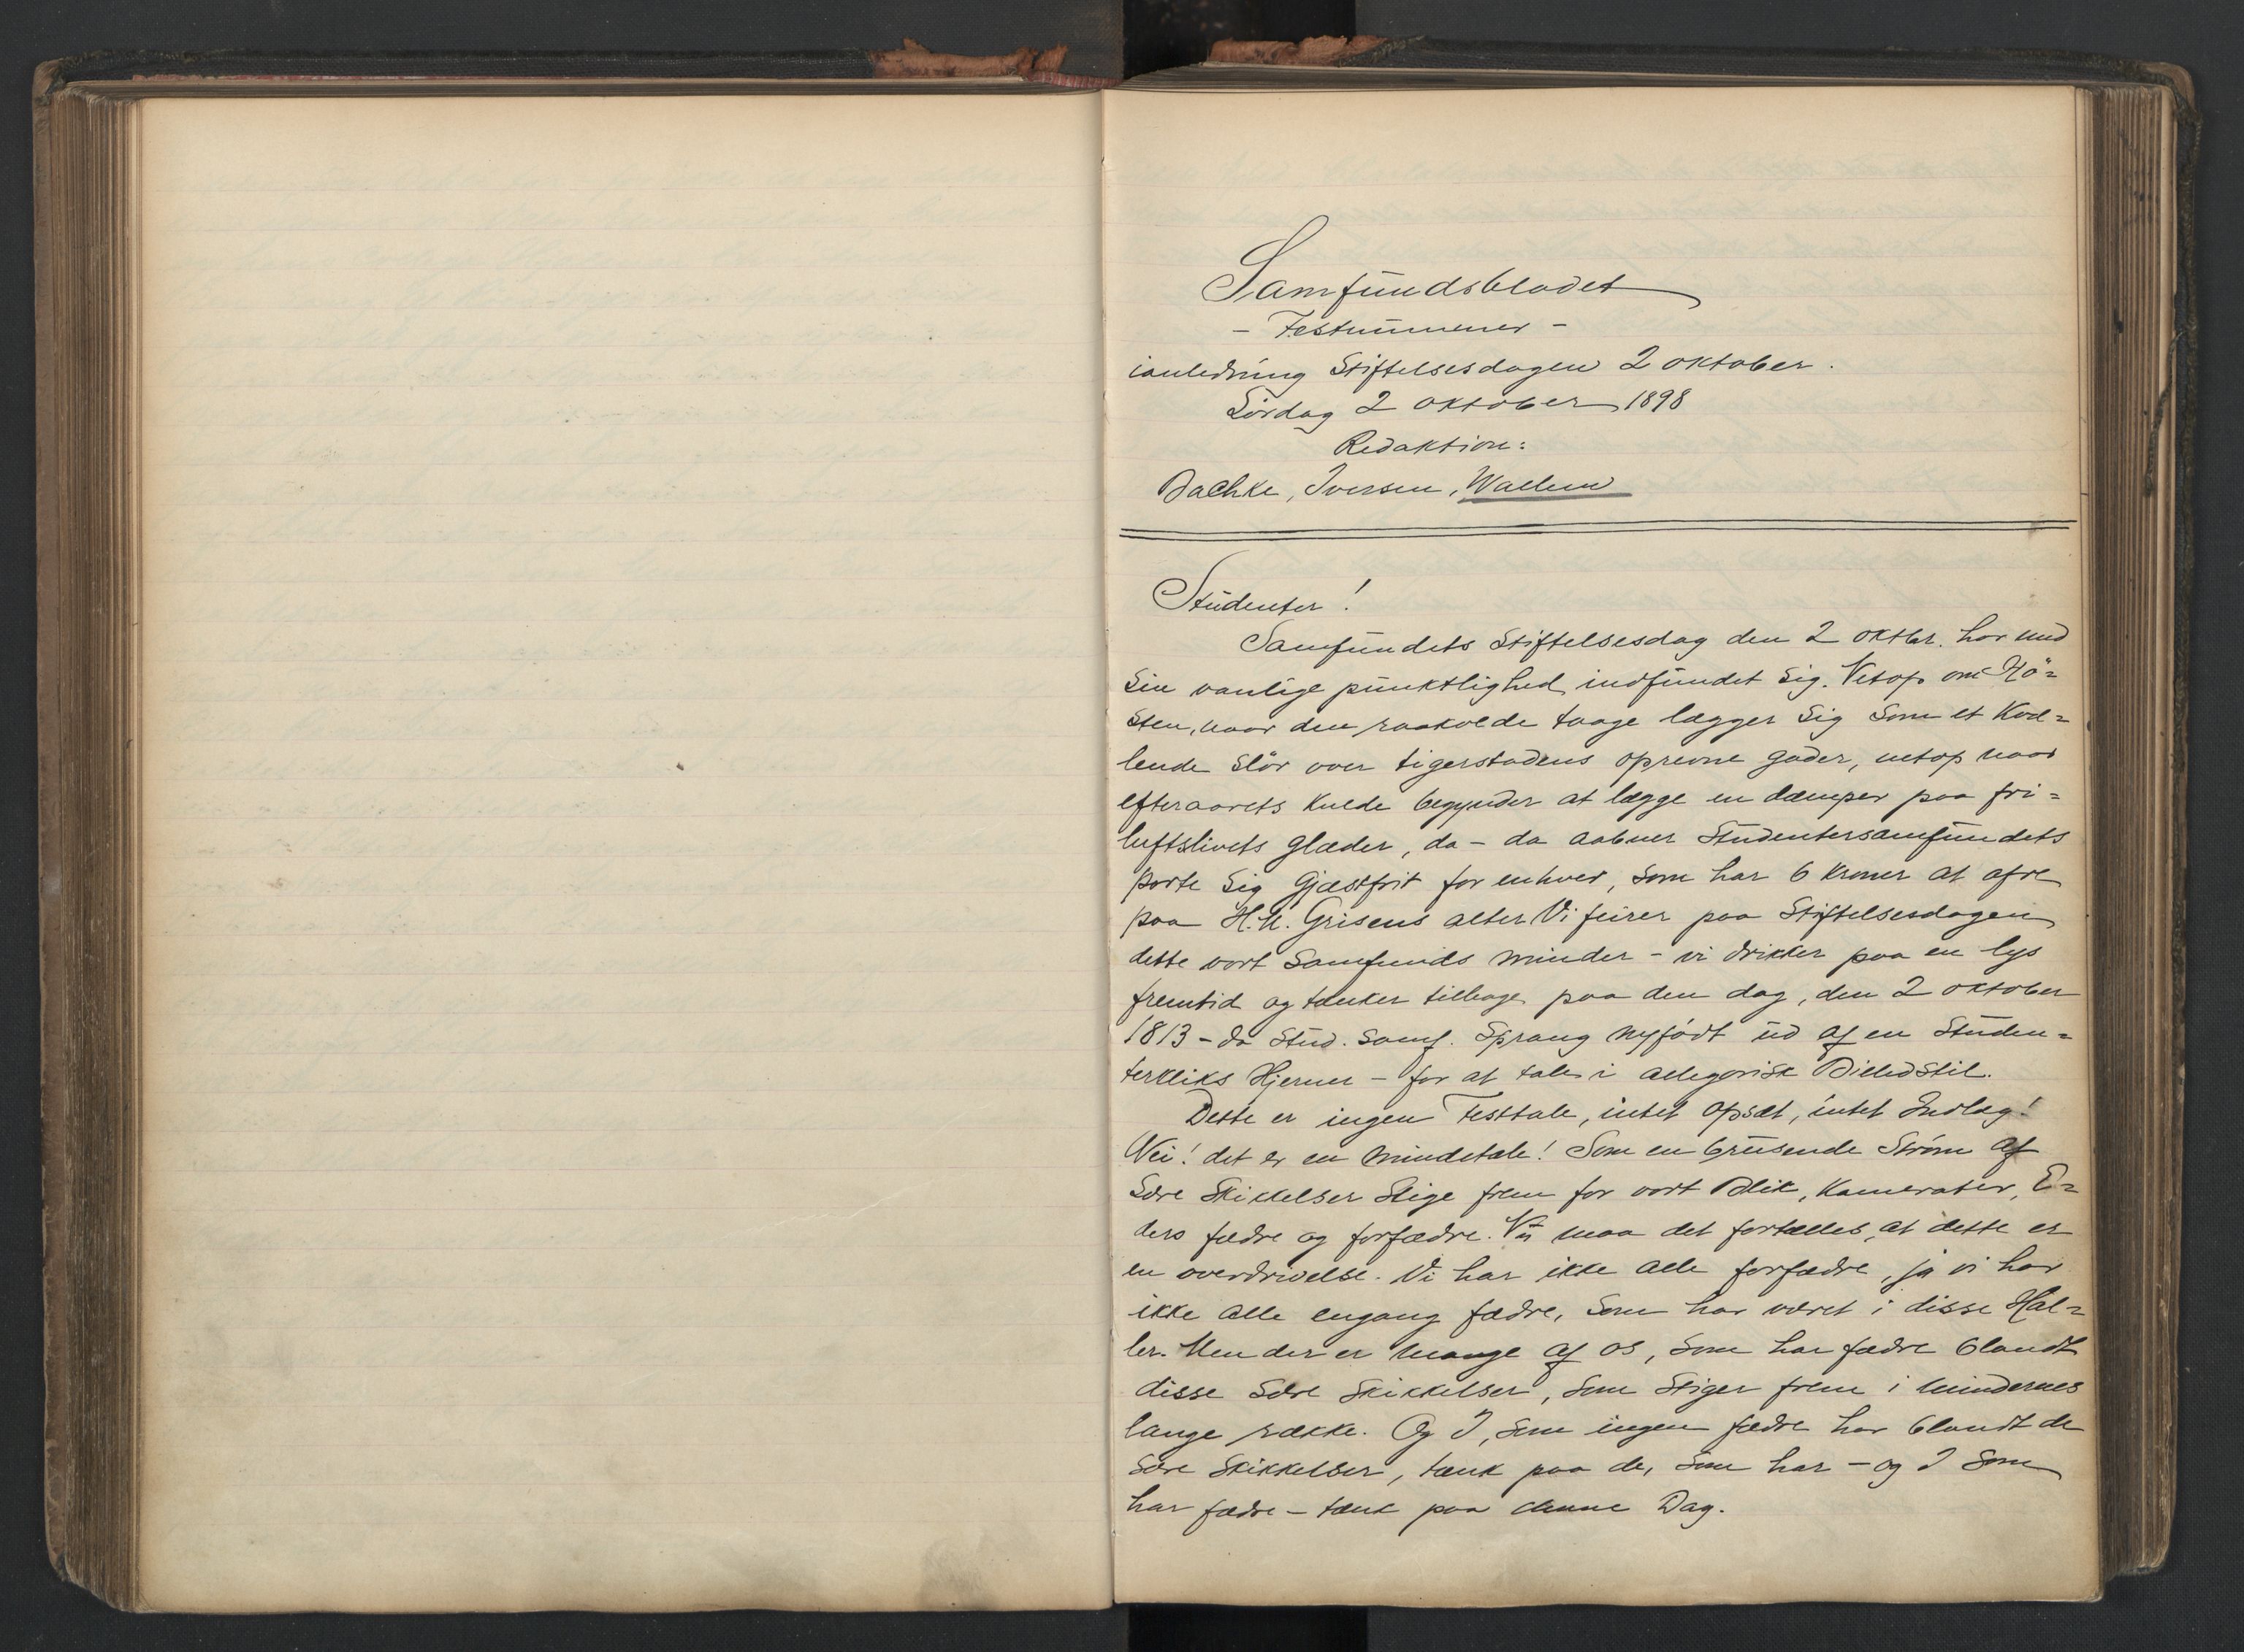 Samfundsbladet
- Festnummer -
ianledning Stiftelsesdagen 2 oktober.
Lördag 2 oktober 1898
Redaktion:
Bachke, Iversen, Wallem
Studenter!
Samfundets Stiftelsesdag den 2 oktbr. har med
Sin vanlige punktlighed indfundet Sig. Netop om Hö=
Sten, naar den raakolde taage lægger Sig Som et Kvæ=
lende Slör over tigerstadens oprevne gader, netop naar
efteraarets Kulde begynder at lægge en dæmper paa fri=
luftslivets glæder, da - da aabner Studentersamfundets
porte Sig gjæstfrit for enhver, Som har 6 Kroner at ofre
paa H. H. Grisens alter. Vi feirer paa Stiftelsesdagen
dette vort Samfunds minder - vi drikker paa en lys
fremtid og tænker tilbage paa den dag, den 2 oktober
1813 - da Stud. Samf. Sprang nyfödt ud af en Studen=
terkliks Hjerner - for at tale i allegorisk Billedstil.
Dette er ingen Festtale, intet opsæt, intet Indlæg!
Nei! det er en mindetale! Som en brusende Ström af
Sære Skikkelser Stige frem for vort Blik, Kamerater, E=
ders fædre og forfædre. Vi maa det fortælles, at dette er
en overdrivelse. Vi har ikke alle forfædre, ja vi har
ikke alle engang fædre, Som har været i disse Hal=
ler. Men der er mange af os, Som har fædre blandt
disse Sære Skikkelser, Som Stiger frem i mindernes
lange række. Og I, Som ingen fædre har blandt de
Sære Skikkelser, tænk paa de, Som har - og I Som
har fædre - tænk paa denne Dag.